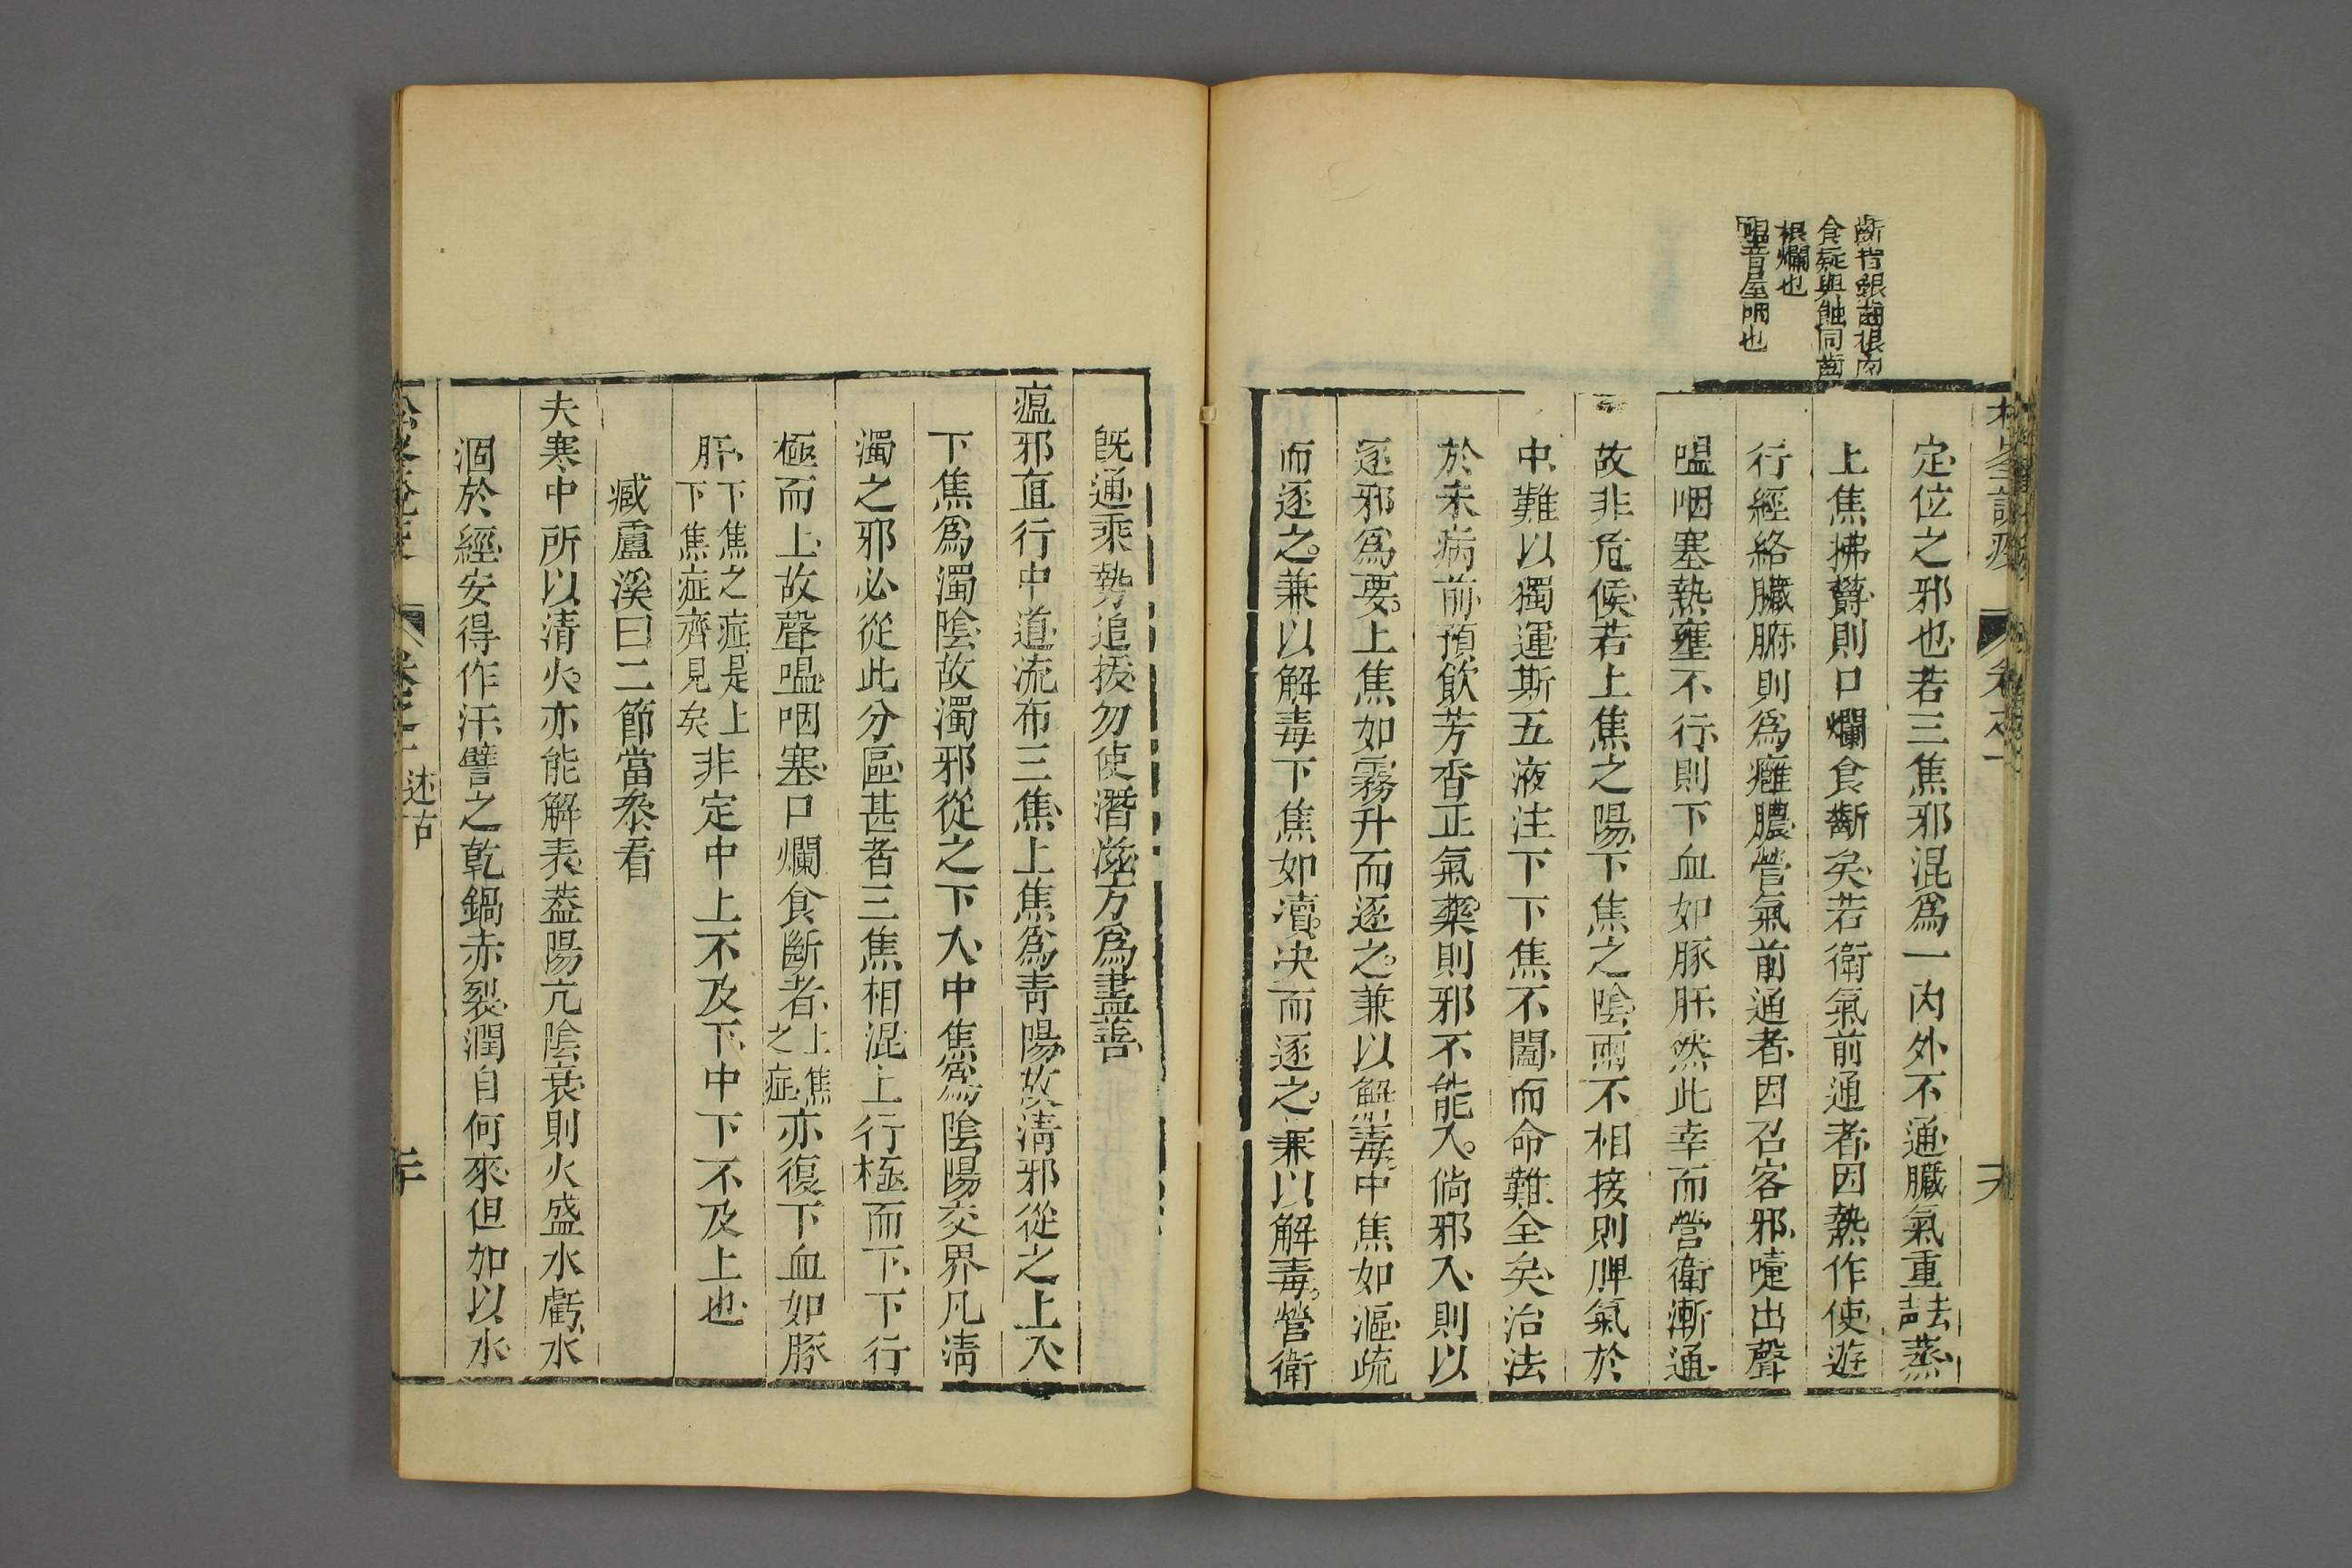 齗音銀齒根肉
食疑與蝕同齒
根爛也
嗢音屋咽也
松峯說疫
卷之一
定位之邪也若三焦邪混爲一內外不通臟氣熏蒸
上焦拂鬱則口爛食齗矣若衛氣前通者因熱作使遊
行經絡臟腑則爲癰膿營氣前通者因召客邪嚏出聲
嗢咽塞熱壅不行則下血如豚肝然此幸而營衛漸通
故非危候若上焦之陽下焦之陰兩不相接則脾氣於
中難以獨運斯五液注下下焦不闔而命難全矣治法
於未病前預飲芳香正氣藥則邪不能入倘邪入則以
逐邪爲要上焦如霧升而逐之兼以解毒中焦如漚疏
而逐之兼以解毒下焦如瀆决而逐之兼以解毒營衛
既通乘勢追拔勿使潛滋方爲盡善
瘟邪直行中道流布三焦上焦爲青陽故清邪從之上入
下焦爲濁陰故濁邪從之下入中焦爲陰陽交界凡清
濁之邪必從此分區甚者三焦相混上行極而下下行
極而上故聲嗢咽塞口爛食斷者上焦之症亦復下血如豚
肝下焦之症是上下焦症齊見矣非定中上不及下中下不及上也
臧盧溪曰二節當叅看
夫寒中所以清火亦能解表葢陽亢陰衰則火盛水虧水
涸於經安得作汗譬之乾鍋赤裂潤自何來但加以水
松峯說疫
卷之一
述古
二十